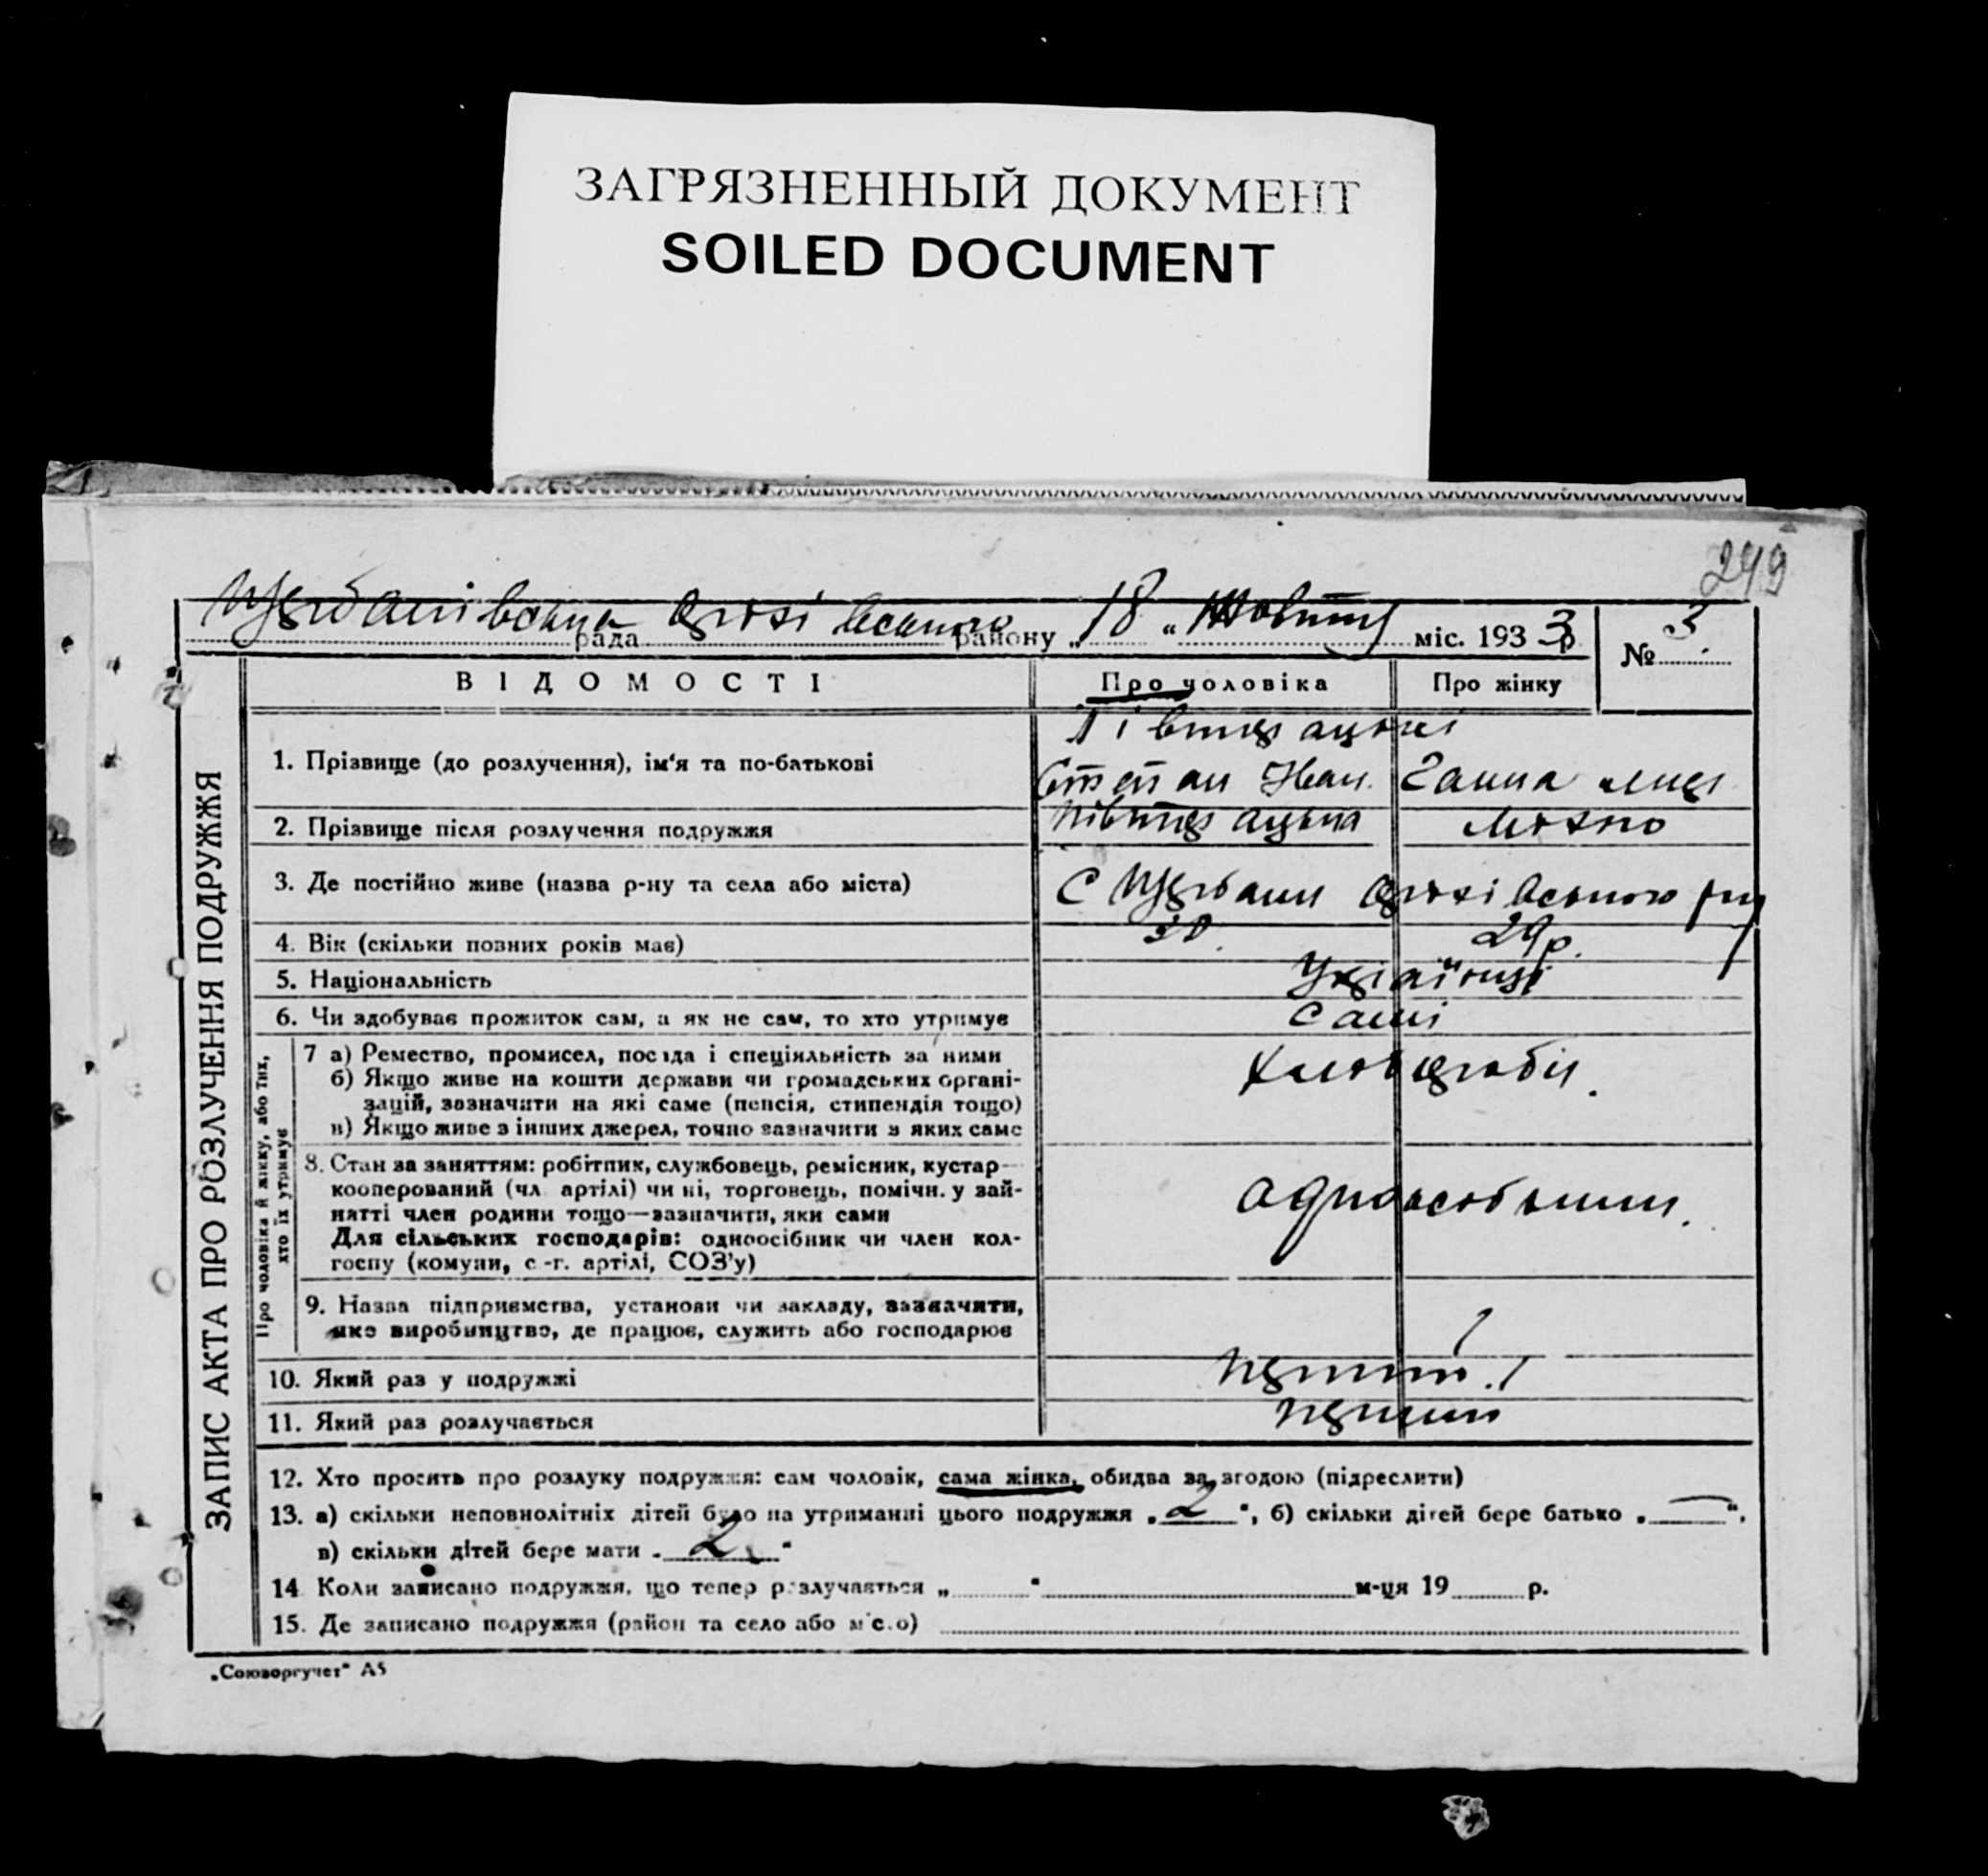 ЗАГРЯЗНЕННЫЙ ДОКУМЕНТ
SOILED DOCUMENT
249
Щербанівська рада району „18“ Жовтня міс. 1933р № 3.
ЗАПИС АКТА ПРО РОЗЛУЧЕННЯ ПОДРУЖЖЯ
ВІДОМОСТІ Про чоловіка Про жінку
1. Прізвище (до розлучення), ім'я та по-батькові
Степан Иван. Ганна
2. Прізвище після розлучення подружжя
3. Де постійно живе (назва р-ну та села або міста) С Щербани
4. Вік (скільки повних років має) 30. 29р.
5. Національність Українці
6. Чи здобуває прожиток сам, а як не сам, то хто утримує Самі
Про чоловіка й жінку, або тих, хто їх утримує
7 а) Ремество, промисел, посада і спеціяльність за ними Хлібороби.
б) Якщо живе на кошти держави чи громадських органі-
зацій, зазначити на які саме (пенсія, стипендія тощо)
в) Якщо живе з інших джерел, точно зазначити з яких саме
8. Стан за заняттям: робітник, службовець, ремісник, кустар—
кооперований (чл. артілі) чи ні, торговець, помічн. у зай-
нятті член родини тощо—зазначити, яки сами
Для сільських господарів: одноосібник чи член кол-
госпу (комуни, с.-г. артілі, СОЗ'у)
9. Назва підприємства, установи чи закладу, зазначити,
яке виробництво, де працює, служить або господарює
10. Який раз у подружжі перший
11. Який раз розлучається перший
12. Хто просить про розлуку подружжя: сам чоловік, сама жінка, обидва за згодою (підреслити)
13. а) скільки неповнолітніх дітей було на утриманні цього подружжя „2“, б) скільки дітей бере батько „—“,
в) скільки дітей бере мати „2“
14. Коли записано подружжя, що тепер розлучається „ “ м-ця 19 р.
15. Де записано подружжя (район та село або місто)
„Союзоргучет“ А5